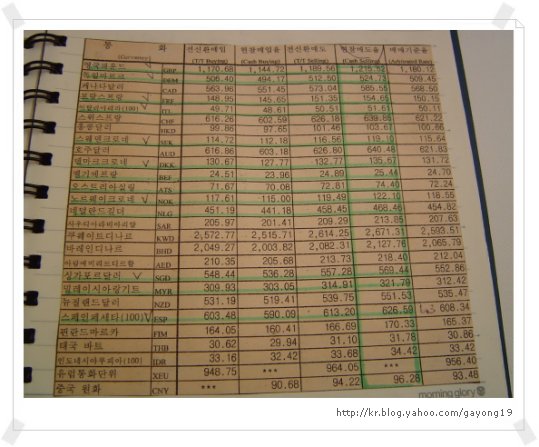 통 화 전신환매입 현찰매입율 전신환매도 현찰매도율 매매기준율
(Currency) (T/T Buying) (Cash Buying) (T/T Selling) (Cash Selling) (Arbitrated Rate)
영국파운드 V GBP 1,170.68 1,144.72 1,189.56 1,215.52 1,180.12
독일마르크 V DEM 506.40 494.17 512.50 524.73 509.45
캐나다달러 CAD 563.96 551.45 573.04 585.55 568.50
프랑스프랑 V FRF 148.95 145.65 151.35 154.65 150.15
이탈리아리라(100) V ITL 49.71 48.61 50.51 51.61 50.11
스위스프랑 CHF 616.26 602.59 626.18 639.85 621.22
홍콩달러 HKD 99.86 97.65 101.46 103.67 100.66
스웨덴크로네 V SEK 114.72 112.18 116.56 119.10 115.64
호주달러 AUD 616.86 603.18 626.80 640.48 621.83
덴마크크로네 V DKK 130.67 127.77 132.77 135.67 131.72
벨기에프랑 BEF 24.51 23.96 24.89 25.44 24.70
오스트리아실링 ATS 71.67 70.08 72.81 74.40 72.24
노르웨이크로네 V NOK 117.61 115.00 119.49 122.10 118.55
네덜란드길더 NLG 451.19 441.18 458.45 468.46 454.82
사우디아라비아리알 SAR 205.97 201.41 209.29 213.85 207.63
쿠웨이트디나르 KWD 2,572.77 2,515.71 2,614.25 2,671.31 2,593.51
바레인디나르 BHD 2,049.27 2,003.82 2,082.31 2,127.76 2,065.79
아랍에미리트디르함 AED 210.35 205.68 213.73 218.40 212.04
싱가포르달러 V SGD 548.44 536.28 557.28 569.44 552.86
말레이시아링기트 MYR 309.93 303.05 314.91 321.79 312.42
뉴질랜드달러 NZD 531.19 519.41 539.75 551.53 535.47
스페인페세타(100) V ESP 603.48 590.09 613.20 626.59 608.34
핀란드마르카 FIM 164.05 160.41 166.69 170.33 165.37
태국 바트 THB 30.62 29.94 31.10 31.78 30.86
인도네시아루피아(100) IDR 33.16 32.42 33.68 34.42 33.42
유럽통화단위 XEU 948.75 *** 964.05 *** 956.40
중국 원화 CNY *** 90.68 94.22 96.28 93.48
morning glory
http://kr.blog.yahoo.com/gayong19